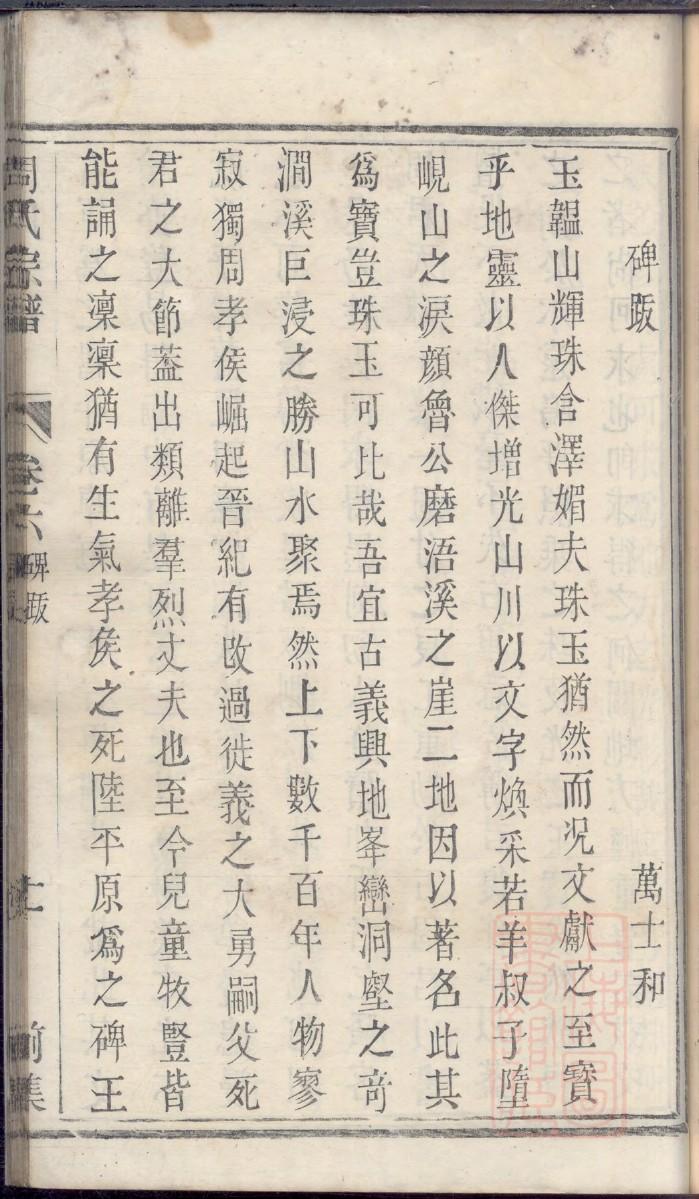 碑䟦
萬士和
玉韞山輝珠含澤媚夫珠玉猶然而况文獻之至寶
乎地靈以人傑增光山川以文字煥采若羊叔子墮
峴山之淚顔魯公磨浯溪之崖二地因以著名此其
爲寶豈珠玉可比哉吾宜古義興地峯巒洞壑之竒
澗溪巨浸之勝山水聚焉然上下數千百年人物寥
寂獨周孝侯崛起晉紀有改過徙義之大勇嗣父死
君之大節蓋出類離羣烈丈夫也至今兒童牧豎皆
能誦之凛凛猶有生氣孝侯之死陸平原爲之碑王
周氏宗譜
卷之六
碑䟦
上
前集